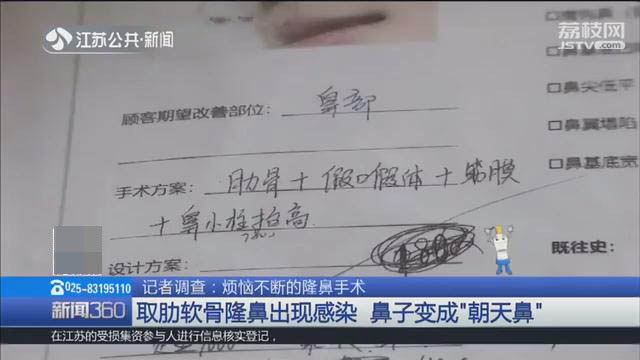 江苏公共·新闻
荔枝网
JSTV.com
顾客期望改善部位：鼻部
□鼻尖低平
□鼻翼塌陷
手术方案：肋骨+假体+筋膜
□鼻基底宽
+鼻小柱抬高
既往史：
设计方案：
025-83195110
记者调查：烦恼不断的隆鼻手术
新闻360
取肋软骨隆鼻出现感染 鼻子变成"朝天鼻"
在江苏的受损集资参与人进行信息核实登记，